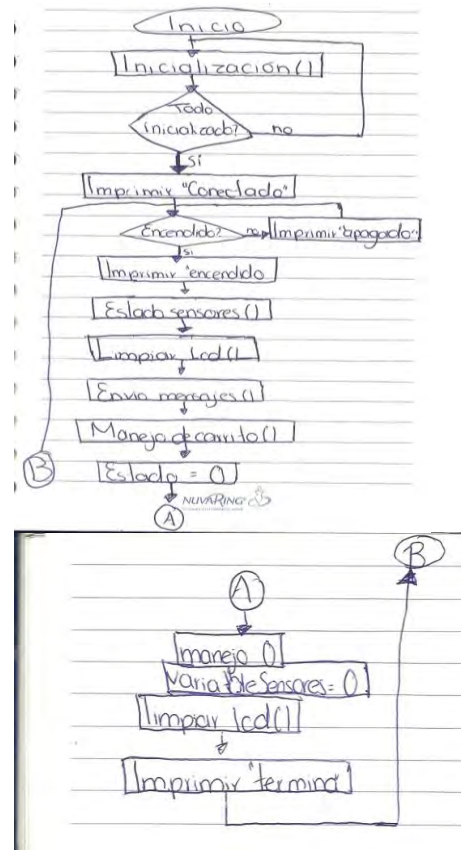 Inicio
Inicialización()
Todo
inicializado?
no
sí
Imprimir "Conectado"
Encendido?
no
Imprimir "apagado"
si
Imprimir "encendido
Estado sensores()
Limpiar Lcd()
Envio mensajes()
Manejo de carrito()
B
Estado = 0
NUVARING
A
B
A
manejo 0
Variable Sensores = 0
limpiar lcd()
Imprimir "termina"